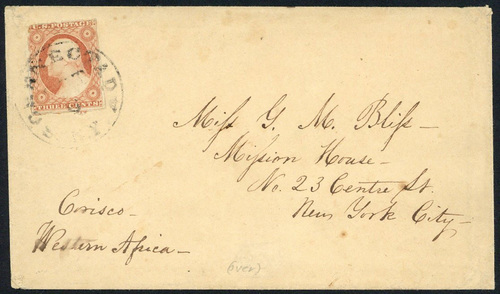 U.S. POSTAGE
THREE CENTS
SCHENECTADY
N.Y.
Miss G. M. Bliss—
Mission House—
No. 23 Centre St.
New York City—
Corisco—
Western Africa—
(over)